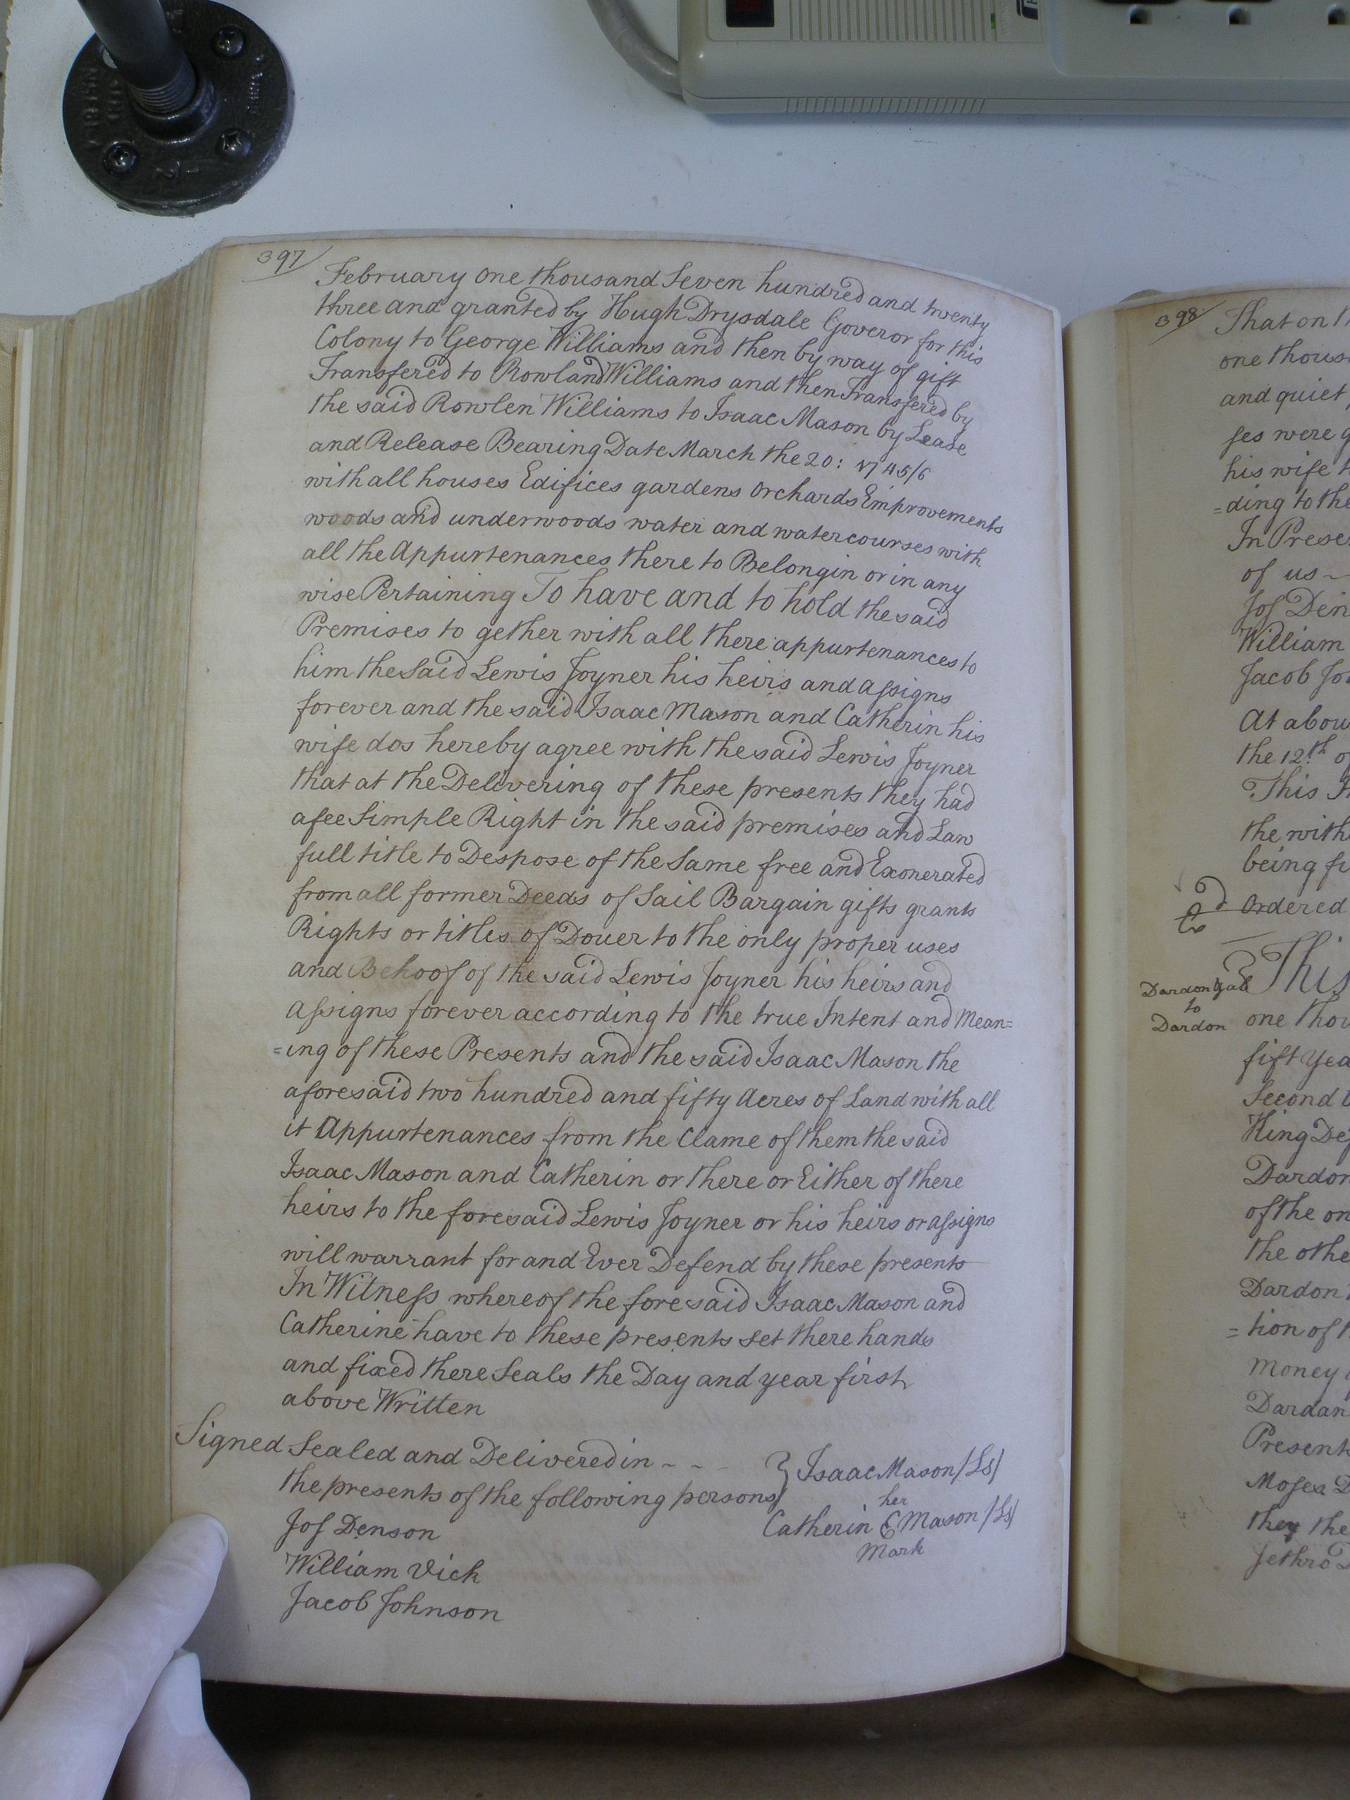 397
February one thousand Seven hundred and twenty
three and granted by Hugh Drysdale Goveror for this
Colony to George Williams and then by way of gift
Transfered to Rowland Williams and then Transfered by
the said Rowlen Williams to Isaac Mason by Lease
and Release Bearing Date March the 20: 1745/6
with all houses Edifices gardens orchards Emprovements
woods and underwoods water and watercourses with
all the Appurtenances there to Belongin or in any
wise Pertaining To have and to hold the said
Premises to gether with all there appurtenances to
him the Said Lewis Joyner his heirs and assigns
forever and the said Isaac Mason and Catherin his
wife dos hereby agree with the said Lewis Joyner
that at the Delivering of these presents they had
a fee Simple Right in the said premises and Law
full title to Despose of the Same free and Exonerated
from all former Deeds of Sail Bargain gifts grants
Rights or titles of Douer to the only proper uses
and Behoof of the said Lewis Joyner his heirs and
assigns forever according to the true Intent and Mean=
=ing of these Presents and the said Isaac Mason the
aforesaid two hundred and fifty acres of Land with all
it Appurtenances from the Clame of them the said
Isaac Mason and Catherin or there or Either of there
heirs to the foresaid Lewis Joyner or his heirs or assigns
will warrant for and Ever Defend by these presents
In Witness whereof the fore said Isaac Mason and
Catherine have to these presents set there hands
and fixed there Seals the Day and year first
above Written
Signed Sealed and Delivered in - - - } Isaac Mason /Ls/
the presents of the following persons
her
Catherin C Mason /Ls/
Mark
Jos Denson
William Vick
Jacob Johnson
398
That on th
one thous
and quiet
ses were g
his wife t
=ding to the
In Prese
of us ~
Jos Den
William
Jacob Jo
At abou
the 12th o
This I
the with
being fu
Ordered
This
Dardon &
to
Dardon
one thou
fift yea
Second b
King Def
Dardon
of the on
the othe
Dardon
=tion of t
money
Dardan
Present
Moses D
they the
Jethro D